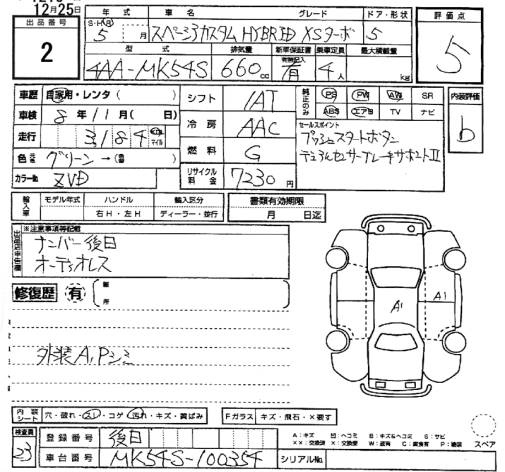 12月25日
出品番号
2
年式 車名 グレード ドア・形状
S・H・R 5 月 スペーシアカスタム HYBRID XSターボ 5
型式 排気量 新車保証書 乗車定員 最大積載量
4AA-MK54S 660cc 有 4人 kg
評価点
5
車歴 自家用・レンタ( )
車検 8年11月( 日)
走行 3,184
色 グリーン→(
カラーNo ZVD
シフト IAT
冷房 AAC
燃料 G
リサイクル料金 7230円
純正のみ PS PW AW SR
ABS エアB TV ナビ
セールスポイント
プッシュスタートボタン
デュアルセンサーブレーキサポートII
内装評価
b
輸入車 モデル年式 ハンドル 輸入区分
右H・左H ディーラー・並行
書類有効期限
月 日迄
※注意事項等記載
ナンバー後日
オーディオレス
修復歴 有 箇所
外装A,Pシミ
A1
A1
内装シート 穴・破れ・スレ・コゲ・汚れ・キズ・黄ばみ
Fガラス キズ・飛石・×要す
検査員
23
登録番号 後日
車台番号 MK54S-100354
シリアルNo.
A:キズ B:キズ&ヘコミ S:サビ
スペア